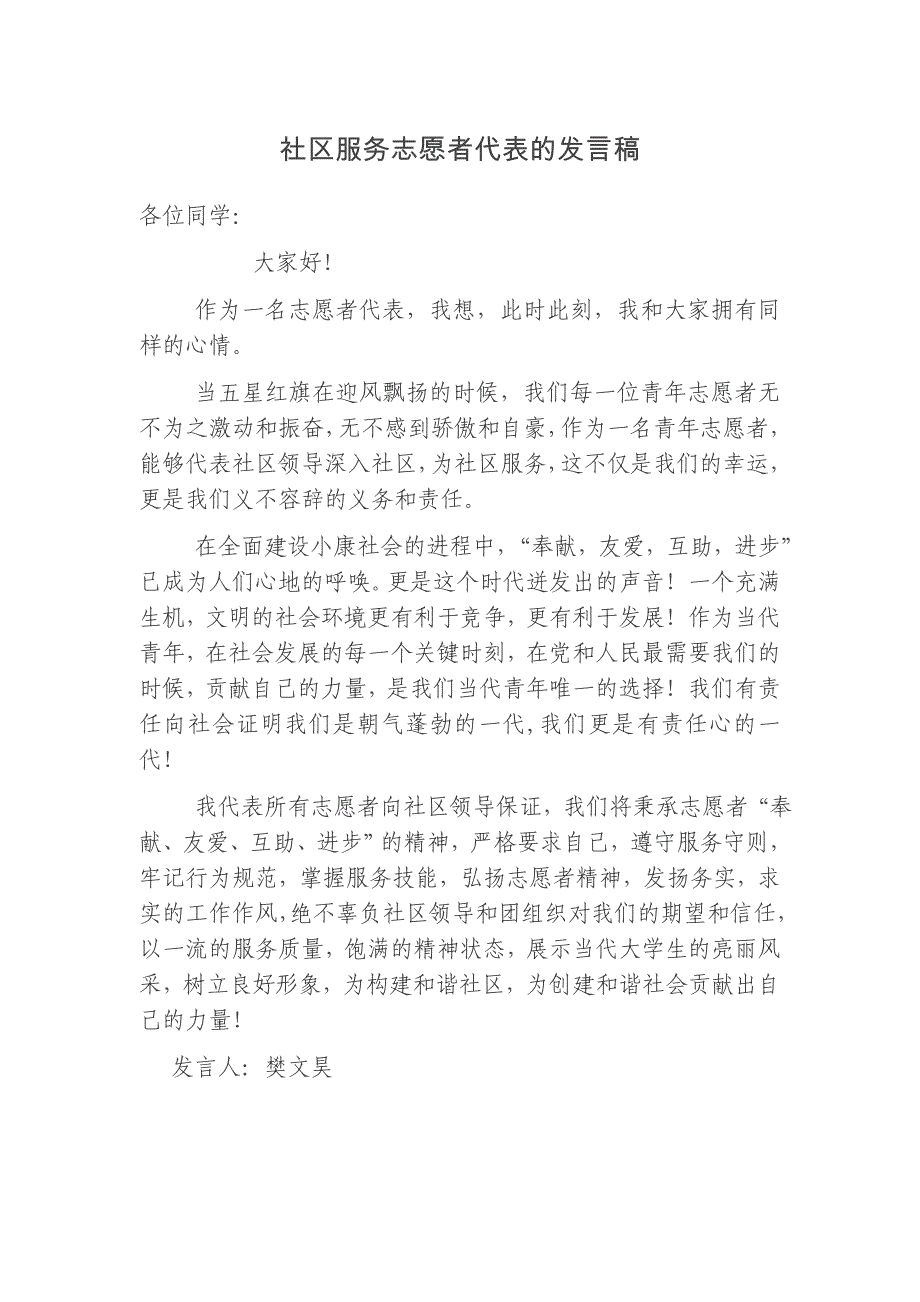 社区服务志愿者代表的发言稿
各位同学：
大家好！
作为一名志愿者代表，我想，此时此刻，我和大家拥有同
样的心情。
当五星红旗在迎风飘扬的时候，我们每一位青年志愿者无
不为之激动和振奋，无不感到骄傲和自豪，作为一名青年志愿者，
能够代表社区领导深入社区，为社区服务，这不仅是我们的幸运，
更是我们义不容辞的义务和责任。
在全面建设小康社会的进程中，“奉献，友爱，互助，进步”
已成为人们心地的呼唤。更是这个时代迸发出的声音！一个充满
生机，文明的社会环境更有利于竞争，更有利于发展！作为当代
青年，在社会发展的每一个关键时刻，在党和人民最需要我们的
时候，贡献自己的力量，是我们当代青年唯一的选择！我们有责
任向社会证明我们是朝气蓬勃的一代，我们更是有责任心的一
代！
我代表所有志愿者向社区领导保证，我们将秉承志愿者“奉
献、友爱、互助、进步”的精神，严格要求自己，遵守服务守则，
牢记行为规范，掌握服务技能，弘扬志愿者精神，发扬务实，求
实的工作作风，绝不辜负社区领导和团组织对我们的期望和信任，
以一流的服务质量，饱满的精神状态，展示当代大学生的亮丽风
采，树立良好形象，为构建和谐社区，为创建和谐社会贡献出自
己的力量！
发言人：樊文昊